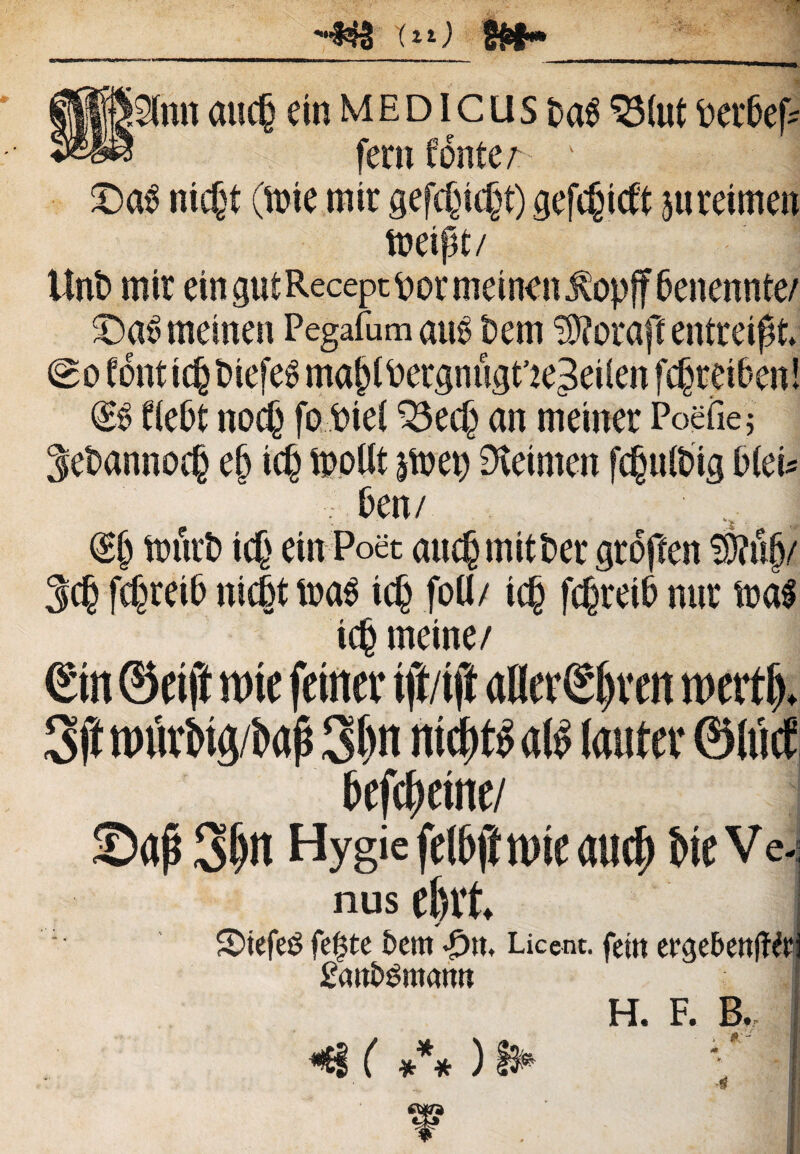 (22)
Kann auch ein MEDICUS das Blut verbes-
sern könte/
Das nicht (wie mir geschicht) geschickt zu reimen
weißt/
Und mir ein gut Recept vor meinen Kopff benennte/
Das meinen Pegasum aus dem Morast entreißt.
So könt ich dieses mahl vergnügt're Zeilen schreiben!
Es klebt noch so viel Bech an meiner Poësie;
Jedannoch eh ich wollt zwey Reimen schuldig blei-
ben/
Eh würd ich ein Poët auch mit der grösten Müh/
Ich schreib nicht was ich soll/ ich schreib nur was
ich meine/
Ein Geist wie seiner ist/ist aller Ehren werth.
Ist würdig/daß Ihn nichts als lauter Glück
bescheine/
Daß Ihn Hygie selbst wie auch die Ve-
nus ehrt.
Dieses setzte dem Hn. Licent. sein ergebenster
Landsmann
H. F. B.
( *** )